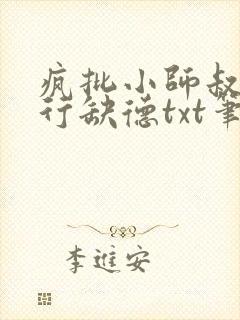 疯批小師叔
行缺德txt筆
李進安